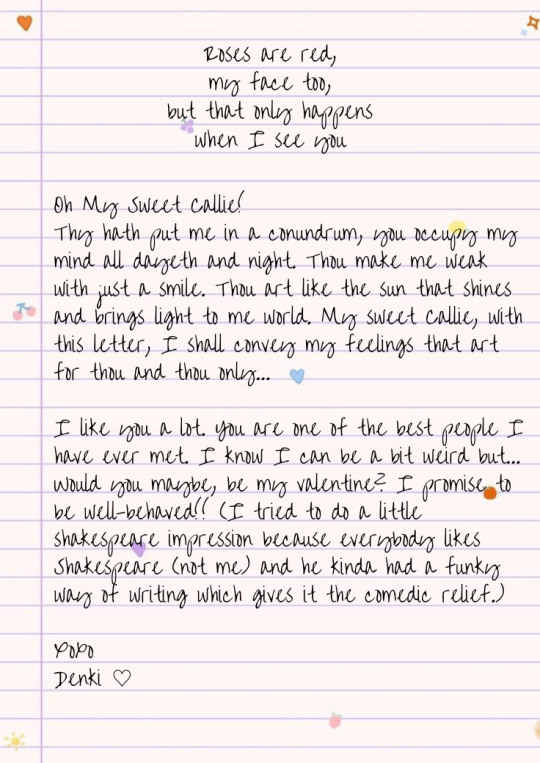 Roses are red,
my face too,
but that only happens
when I see you
Oh My Sweet Callie!
Thy hath put me in a conundrum, you occupy my
mind all dayeth and night. Thou make me weak
with just a smile. Thou art like the sun that shines
and brings light to me world. My sweet Callie, with
this letter, I shall convey my feelings that art
for thou and thou only...
I like you a lot. You are one of the best people I
have ever met. I know I can be a bit weird but...
Would you maybe, be my valentine? I promise to
be well-behaved!! (I tried to do a little
shakespeare impression because everybody likes
Shakespeare (not me) and he kinda had a funky
way of writing which gives it the comedic relief.)
XOXO
Denki ♡